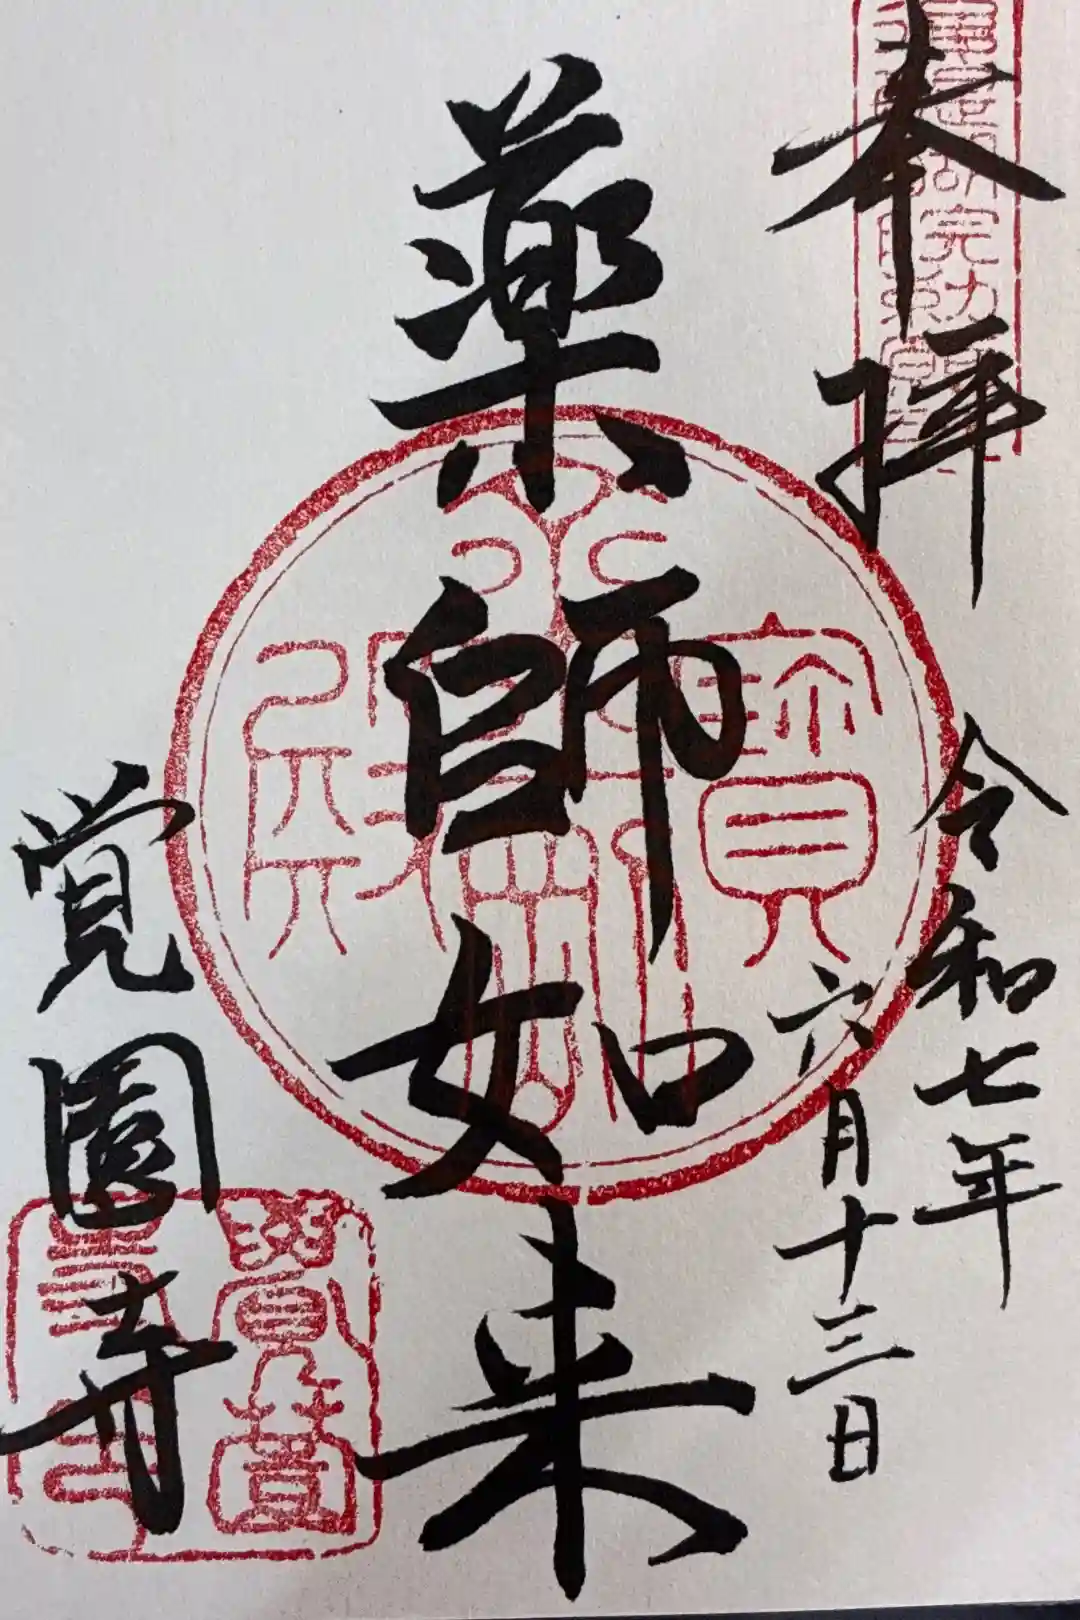 奉拝
令和七年
六月十三日
薬師如来
覚園寺
寶
殿